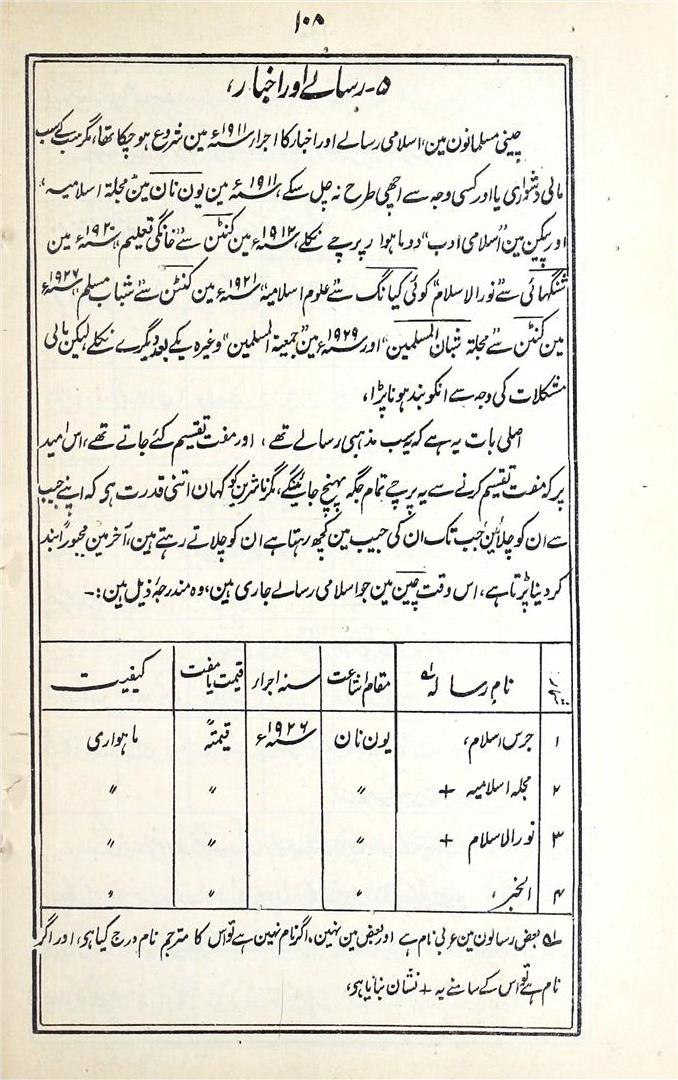 ۱۰۸
۵- رسالے اور اخبار،
چینی مسلمانون مین، اسلامی رسالے اور اخبار کا اجرا ۱۹۱۱ء مین شروع ہو چکا تھا، مگر سب کے سب
مالی دشواری یا اور کسی وجہ سے اچھی طرح نہ چل سکے، ۱۹۱۱ء مین یون نان مین "مجلۃ اسلامیہ"
اور پیکن مین "اسلامی ادب" دو ماہوار پرچے نکلے، ۱۹۱۲ء مین کنٹن سے خانگی تعلیم، ۱۹۲۰ء مین
شنگھائی سے "نور الاسلام" کوئی کیانگ سے علوم اسلامیہ، ۱۹۲۱ء مین کنٹن سے شباب مسلم، ۱۹۲۶ء
مین کنٹن سے مجلۃ شبان المسلمین" اور ۱۹۲۹ء مین "جمعیۃ المسلمین" وغیرہ یکے بعد دیگرے نکلے لیکن مالی
مشکلات کی وجہ سے انکو بند ہونا پڑا،
اصلی بات یہ ہے کہ یہ سب مذہبی رسالے تھے، اور مفت تقسیم کئے جاتے تھے، اس امید
پر کہ مفت تقسیم کرنے سے یہ پرچے تمام جگہ پہنچ جائینگے، مگر ناشرین کو کہان اتنی قدرت ہی کہ اپنے جیب
سے ان کو چلائین جب تک ان کی جیب مین کچھ رہتا ہے ان کو چلاتے رہتے ہین، آخر مین مجبوراً بند
کر دینا پڑتا ہے، اس وقت چین مین جو اسلامی رسالے جاری ہین، وہ مندرجۂ ذیل ہین :-
شمار نام رسالہ لہ مقام اشاعت سنہ اجرار قیمت یا مفت کیفیت
۱ جرس اسلام، یون نان ۱۹۲۶ء قیمتہً ماہواری
۲ مجلہ اسلامیہ + " " "
۳ نور الاسلام + " " "
۴ الخبر، " " "
لہ بعض رسالون مین عربی نام ہے اور بعض مین نہین، اگر نام نہین ہے تو اس کا مترجم نام درج کیا ہی، اور اگر
نام ہے تو اس کے سامنے یہ + نشان بنایا ہی،